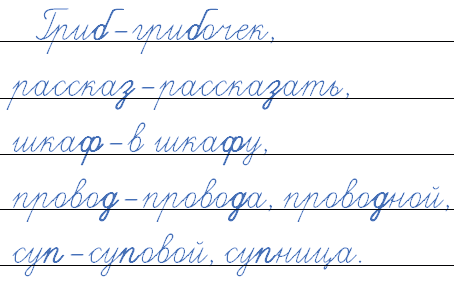 Гриб – грибочек,
рассказ – рассказать,
шкаф – в шкафу,
провод – провода, проводной,
суп – суповой, супница.